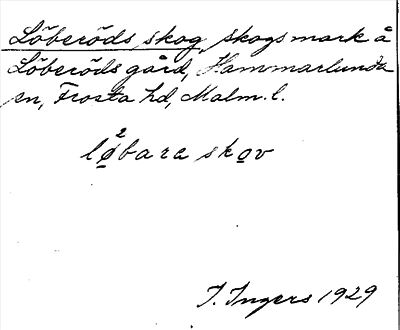 Löberöds skog, skogsmark å
Löberöds gård, Hammarlunda
sn, Frosta hd, Malm. l.
lø²bara skov
I. Ingers 1929